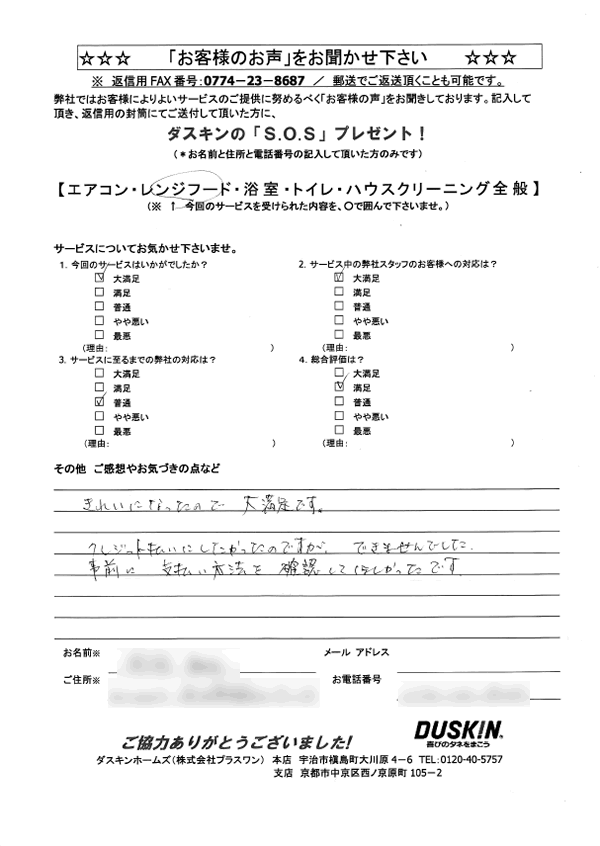 ☆☆☆ 「お客様のお声」をお聞かせ下さい ☆☆☆
※ 返信用FAX番号:0774-23-8687 / 郵送でご返送頂くことも可能です。
弊社ではお客様によりよいサービスのご提供に努めるべく「お客様の声」をお聞きしております。記入して
頂き、返信用の封筒にてご送付して頂いた方に、
ダスキンの「S.O.S」プレゼント!
(*お名前と住所と電話番号の記入して頂いた方のみです)
【エアコン・レンジフード・浴室・トイレ・ハウスクリーニング全般】
(※ ↑ 今回のサービスを受けられた内容を、○で囲んで下さいませ。)
サービスについてお気かせ下さいませ。
1. 今回のサービスはいかがでしたか?
☑ 大満足
□ 満足
□ 普通
□ やや悪い
□ 最悪
(理由: )
2. サービス中の弊社スタッフのお客様への対応は?
☑ 大満足
□ 満足
□ 普通
□ やや悪い
□ 最悪
(理由: )
3. サービスに至るまでの弊社の対応は?
□ 大満足
□ 満足
☑ 普通
□ やや悪い
□ 最悪
(理由: )
4. 総合評価は?
□ 大満足
☑ 満足
□ 普通
□ やや悪い
□ 最悪
(理由: )
その他 ご感想やお気づきの点など
きれいになったので 大満足です。
クレジット払いにしたかったのですが、できませんでした。
事前に 支払い方法を 確認してほしかったです。
お名前※
メール アドレス
ご住所※
お電話番号
ご協力ありがとうございました!
DUSKIN.
喜びのタネをまこう
ダスキンホームズ(株式会社プラスワン) 本店 宇治市槇島町大川原4-6 TEL:0120-40-5757
支店 京都市中京区西ノ京原町105-2